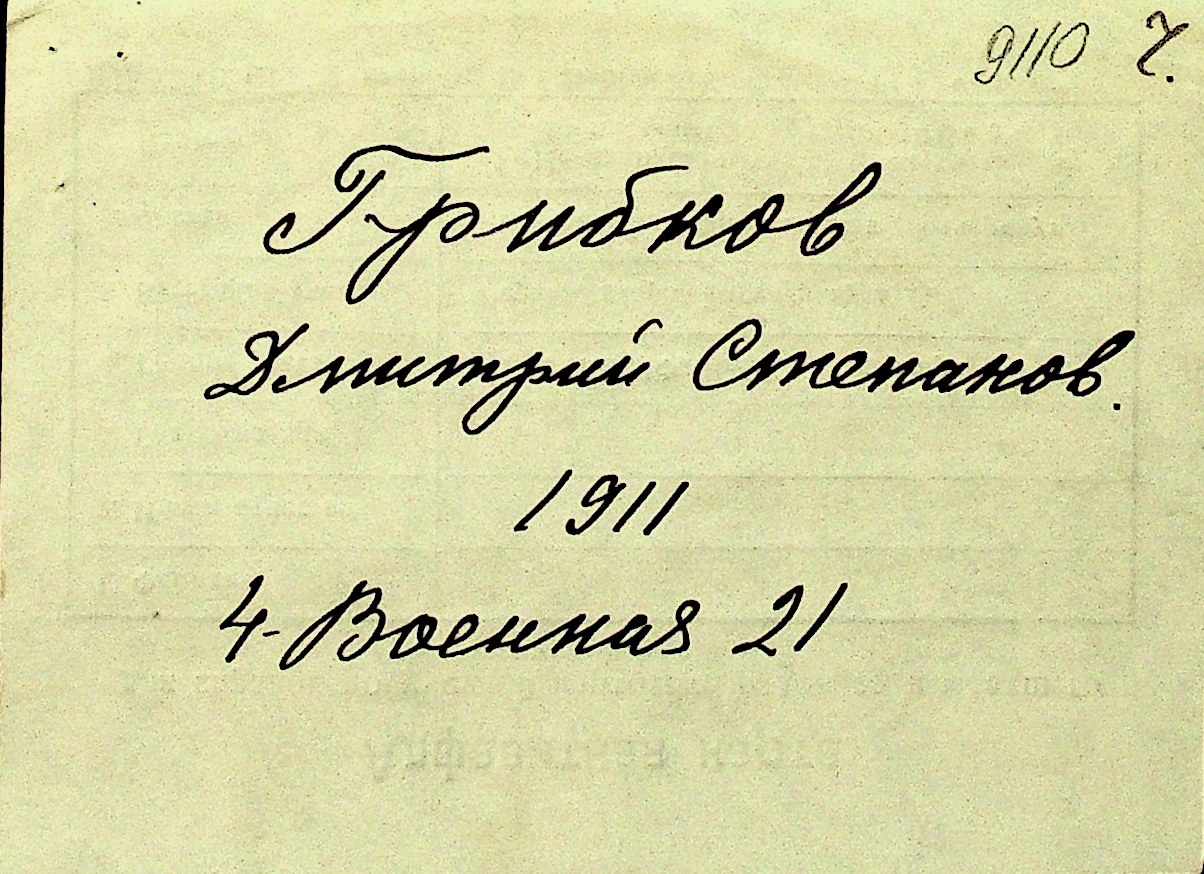 9110 Ч.
Грибков
Дмитрий Степанов.
1911
4-Военная 21